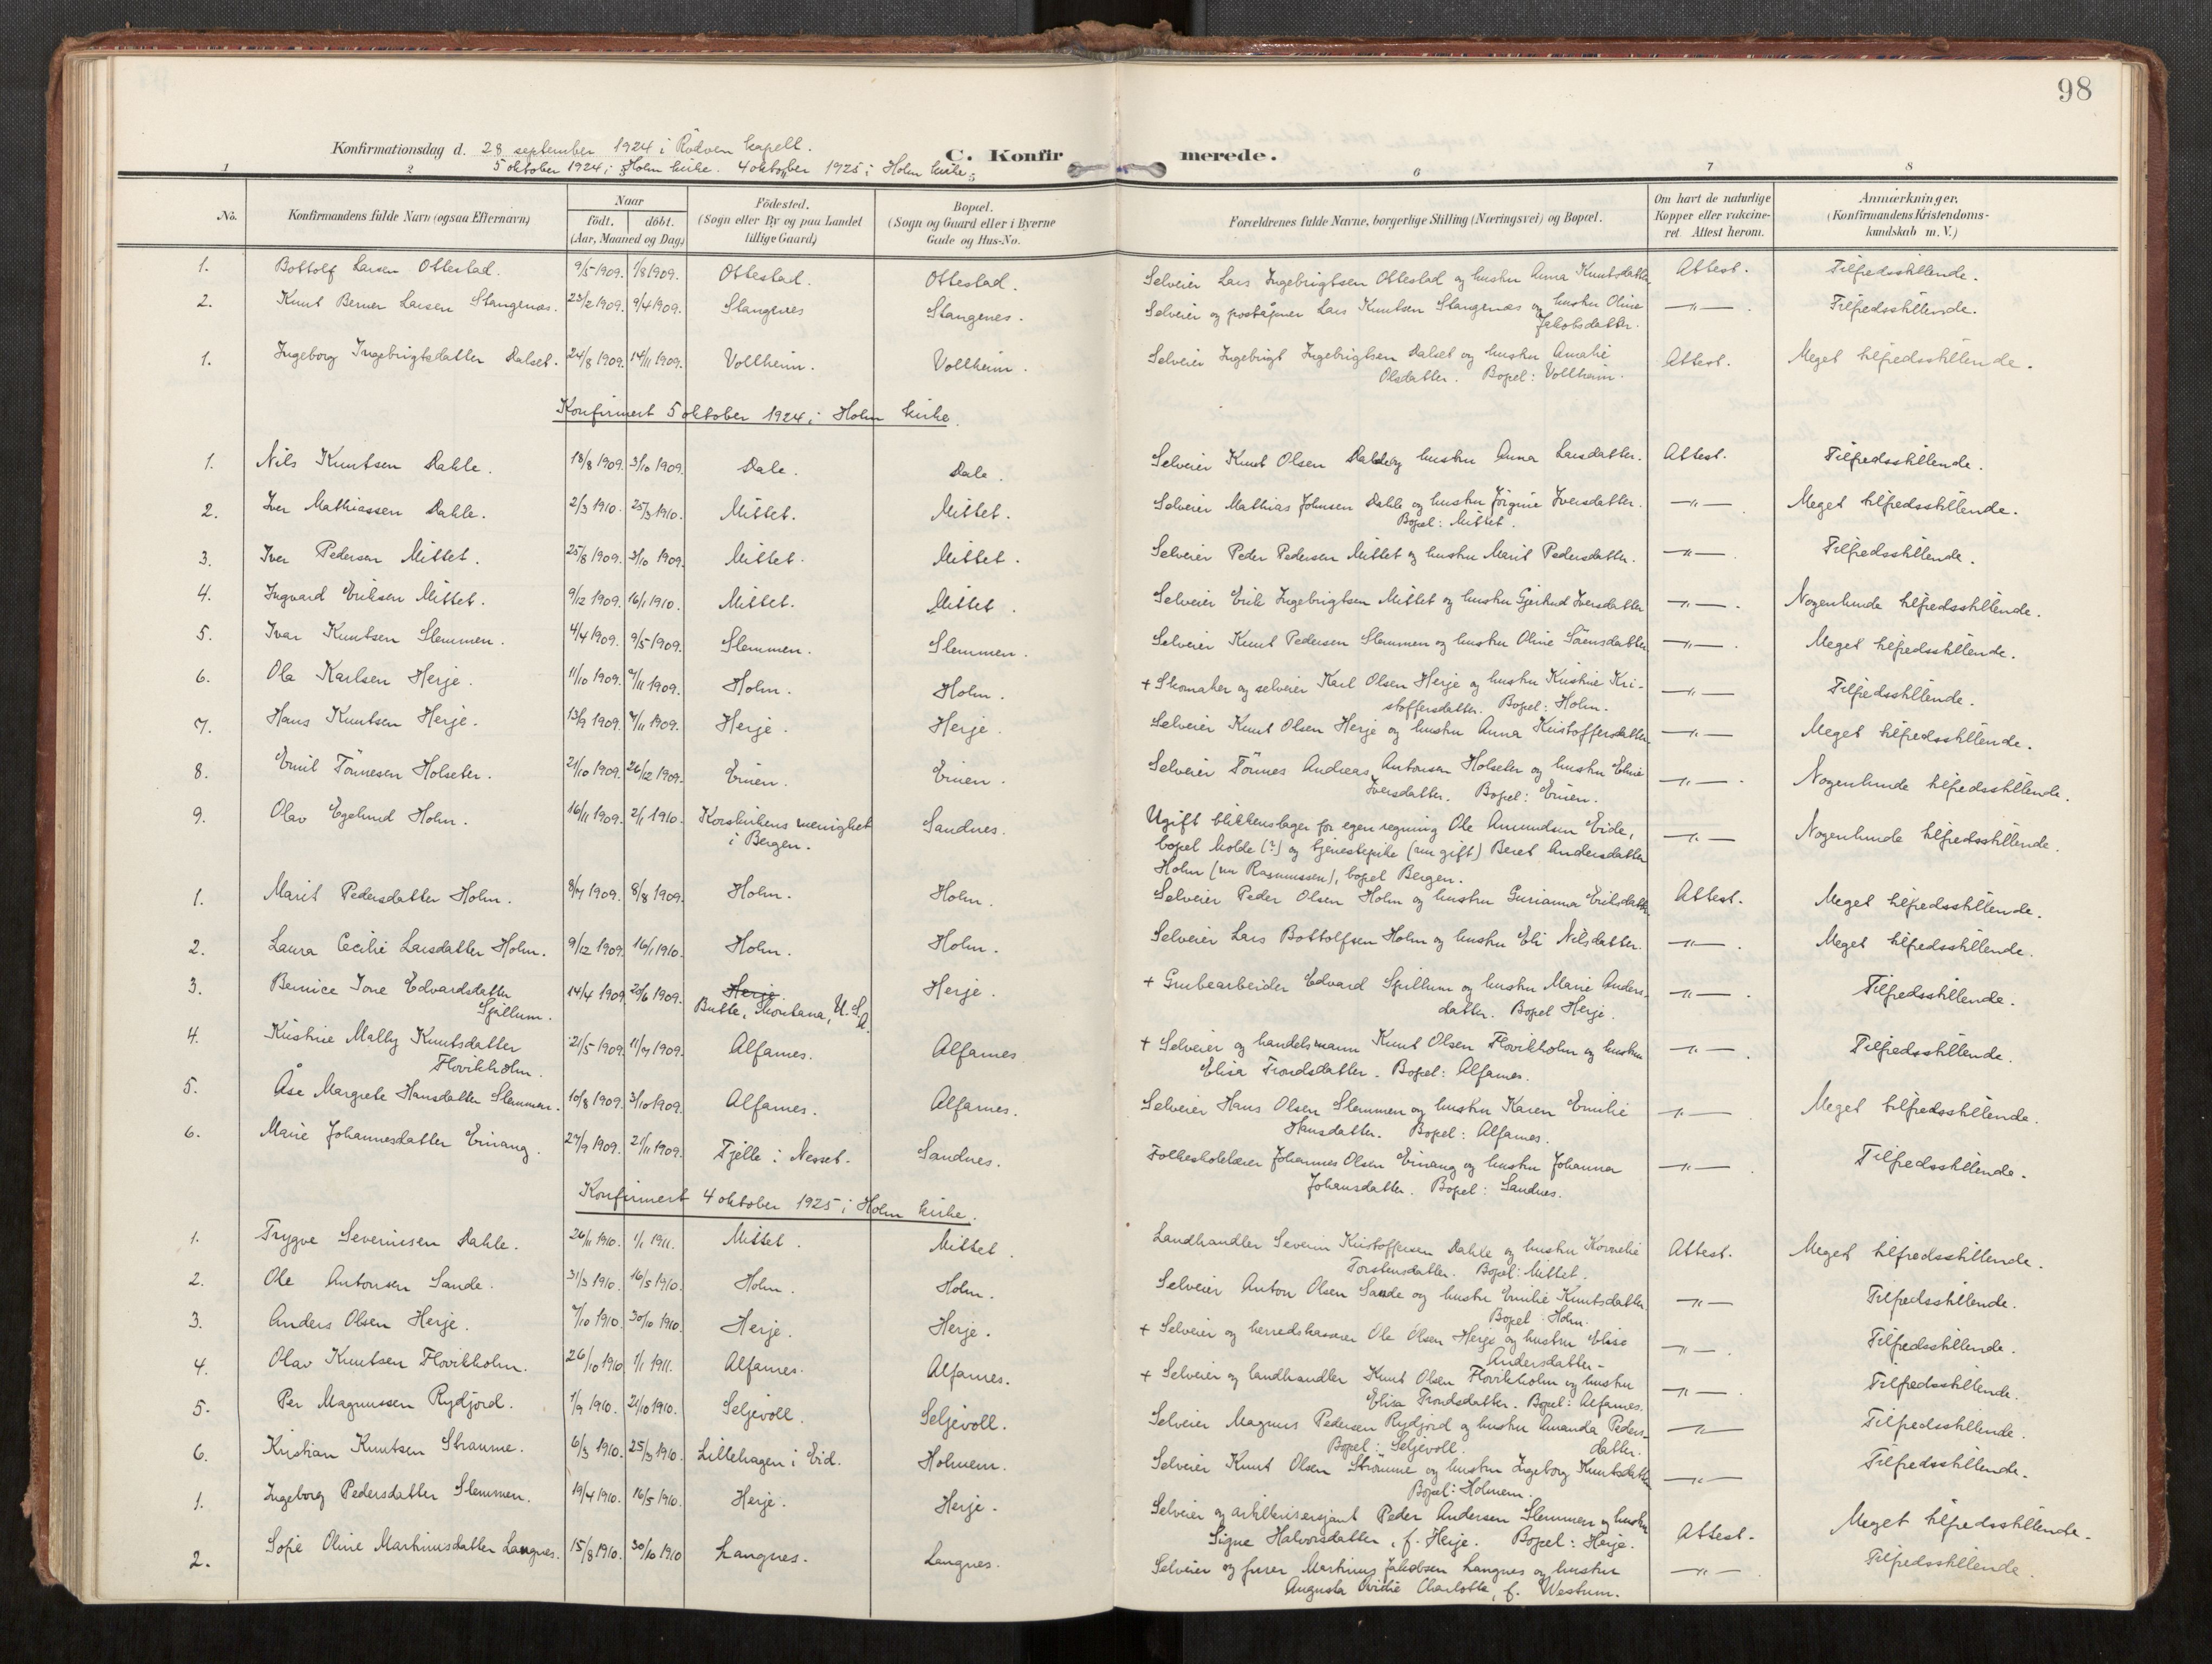 98
Konfirmationsdag d. 28 september 1924 i Rödven kapell.
5 oktober 1924 i Holm kirke. 4 oktober 1925 i Holm kirke.
C. Konfirmerede.
1 2 3 4 5 6 7 8
No. Konfirmandens fulde Navn (ogsaa Efternavn) Naar födt. döbt. (Aar, Maaned og Dag) Födested. (Sogn eller By og paa Landet tillige Gaard) Bopæl. (Sogn og Gaard eller i Byerne Gade og Hus-No. Forældrenes fulde Navne, borgerlige Stilling (Næringsvei) og Bopæl. Om havt de naturlige Kopper eller vaccineret. Attest herom. Anmærkninger. (Konfirmandens Kristendomskundskab m. V.)
1. Bottolf Larsen Ottestad. 9/5 1909. 1/8 1909. Ottestad. Ottestad. Selveier Lars Ingebrigtsen Ottestad og hustru Anna Knutsdatter Attest. Tilfredsstillende.
2. Knut Berner Larsen Stangenes. 23/2 1909. 9/4 1909. Stangenes Stangenes. Selveier og poståpner Lars Knutsen Stangenes og hustru Oline —„— Tilfredsstillende.
Jakobsdatter.
1. Ingeborg Ingebrigtsdatter Dalset. 24/8 1909. 14/11 1909. Vollheim. Vollheim. Selveier Ingebrigt Ingebrigtsen Dalset og hustru Amalie Attest. Meget tilfredsstillende.
Olsdatter. Bopel: Vollheim.
Konfirmert 5 oktober 1924 i Holm kirke.
1. Nils Knutsen Dahle. 18/8 1909. 3/10 1909. Dale. Dale. Selveier Knut Olsen Dahle og hustru Anna Larsdatter. Attest. Tilfredsstillende.
2. Iver Mathiassen Dahle. 2/3 1910. 25/3 1910. Mittet. Mittet. Selveier Mathias Johnsen Dahle og hustru Jörgine Iversdatter. —„— Meget tilfredsstillende.
Bopel: Mittet.
3. Iver Pedersen Mittet. 25/8 1909. 3/10 1909. Mittet. Mittet. Selveier Peder Pedersen Mittet og hustru Marit Pedersdatter. —„— Tilfredsstillende.
4. Ingvard Eriksen Mittet. 9/12 1909. 16/1 1910. Mittet. Mittet. Selveier Erik Ingebrigtsen Mittet og hustru Gjertrud Iversdatter —„— Nogenlunde tilfredsstillende.
5. Ivar Knutsen Slemmen. 4/4 1909. 9/5 1909. Slemmen. Slemmen. Selveier Knut Pedersen Slemmen og hustru Oline Sörensdatter —„— Meget tilfredsstillende.
6. Ola Karlsen Herje. 11/10 1909. 7/11 1909. Holm. Holm. + Skomaker og selveier Karl Olsen Herje og hustru Kristine Kri- —„— Tilfredsstillende.
stoffersdatter. Bopel: Holm.
7. Hans Knutsen Herje. 13/9 1909. 7/11 1909. Herje. Herje. Selveier Knut Olsen Herje og hustru Anna Kristoffersdatter —„— Meget tilfredsstillende.
8. Emil Tönnesen Holseter. 21/10 1909. 26/12 1909. Einen. Einen. Selveier Tönnes Andreas Antonsen Holseter og hustru Eline —„— Nogenlunde tilfredsstillende.
Iversdatter. Bopel: Einen.
9. Olav Egelund Holm. 16/11 1909. 2/1 1910. Korskirkens menighet Sandnes. Ugift blikkenslager for egen regning Ole Amundsen Eide, —„— Nogenlunde tilfredsstillende.
i Bergen. bopel Molde (?) og tjenestepike (nu gift) Beret Andersdatter
Holm (nu Rasmussen), bopel Bergen.
1. Marit Pedersdatter Holm. 8/7 1909. 8/8 1909. Holm. Holm. Selveier Peder Olsen Holm og hustru Gurianna Eriksdatter Attest. Meget tilfredsstillende.
2. Laura Cecilie Larsdatter Holm. 9/12 1909. 16/1 1910. Holm. Holm. Selveier Lars Bottolfsen Holm og hustru Eli Nilsdatter. —„— Meget tilfredsstillende.
3. Bernice Ione Edvardsdatter 14/4 1909 20/6 1909. Herje Herje. + Grubearbeider Edvard Spillum og hustru Marie Anders- —„— Tilfredsstillende.
Spillum. Butte, Montana, U.S.A. datter. Bopel Herje.
4. Kristine Mally Knutsdatter 21/5 1909. 11/7 1909. Alfarnes. Alfarnes + Selveier og handelsmann Knut Olsen Flovikholm og hustru —„— Tilfredsstillende.
Flovikholm. Elisa Trondsdatter. Bopel: Alfarnes.
5. Åse Margrete Hansdatter Slemmen. 10/8 1909. 3/10 1909. Alfarnes. Alfarnes. Selveier Hans Olsen Slemmen og hustru Karen Emilie —„— Meget tilfredsstillende.
Hansdatter. Bopel: Alfarnes.
6. Marie Johannesdatter Einang. 27/9 1909. 21/11 1909. Tjelle i Nesset. Sandnes. Folkeskolelærer Johannes Olsen Einang og hustru Johanna —„— Tilfredsstillende.
Johansdatter. Bopel: Sandnes.
Konfirmert 4 oktober 1925 i Holm kirke.
1. Trygve Severinsen Dahle. 26/11 1910. 1/1 1911. Mittet. Mittet. Landhandler Severin Kristoffersen Dahle og hustru Kornelie Attest. Meget tilfredsstillende.
Torstensdatter. Bopel: Mittet.
2. Ole Antonsen Sande. 31/3 1910. 16/5 1910. Holm. Holm. Selveier Anton Olsen Sande og hustru Emilie Knutsdatter —„— Tilfredsstillende.
Bopel: Holm.
3. Anders Olsen Herje. 7/10 1910. 30/10 1910. Herje. Herje. + Selveier og herredskasserer Ole Olsen Herje og hustru Elise —„— Tilfredsstillende.
Andersdatter.
4. Olav Knutsen Flovikholm. 26/10 1910 1/1 1911. Alfarnes. Alfarnes. + Selveier og landhandler Knut Olsen Flovikholm og hustru —„— Tilfredsstillende.
Elisa Trondsdatter. Bopel: Alfarnes.
5. Per Magnussen Rydjord. 1/9 1910. 21/10 1910. Seljevoll. Seljevoll. Selveier Magnus Pedersen Rydjord og hustru Amanda Peders- —„— Tilfredsstillende.
Bopel: Seljevoll. datter.
6. Kristian Knutsen Straume. 6/3 1910. 25/3 1910. Lillehagen i Eid. Holmem. Selveier Knut Olsen Strömme og hustru Ingeborg Knutsdatter —„— Tilfredsstillende.
Bopel: Holmem.
1. Ingeborg Pedersdatter Slemmen. 19/4 1910. 16/5 1910. Herje. Herje. Selveier og artillerisersjant Peder Andersen Slemmen og hustru Attest. Meget tilfredsstillende.
Signe Halvorsdatter, f. Herje. Bopel: Herje.
2. Sofie Oline Martinusdatter Langnes. 15/8 1910. 30/10 1910 Langnes. Langnes. Selveier og furer Martinus Jakobsen Langnes og hustru —„— Tilfredsstillende.
Augusta Ovidie Charlotte, f. Westum.